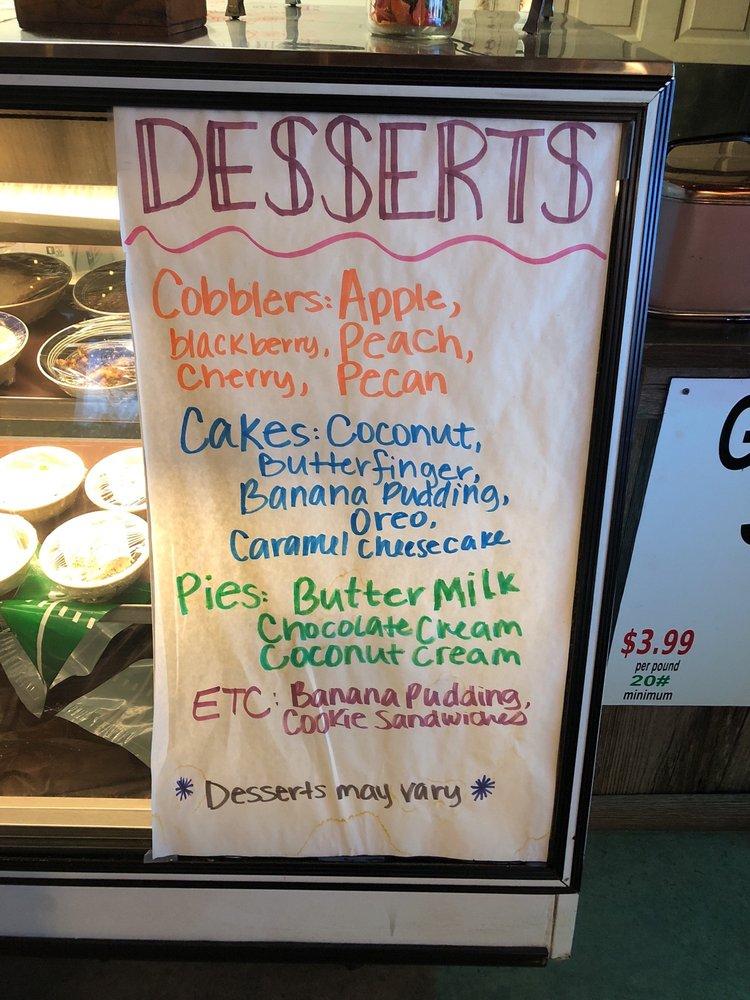 DESSERTS
Cobblers: Apple,
blackberry, Peach,
Cherry, Pecan
Cakes: Coconut,
Butterfinger,
Banana Pudding,
Oreo,
Caramel Cheesecake
Pies: Butter Milk
Chocolate Cream
Coconut Cream
ETC: Banana Pudding,
Cookie Sandwiches
* Desserts may vary *
G
$3.99
per pound
20#
minimum